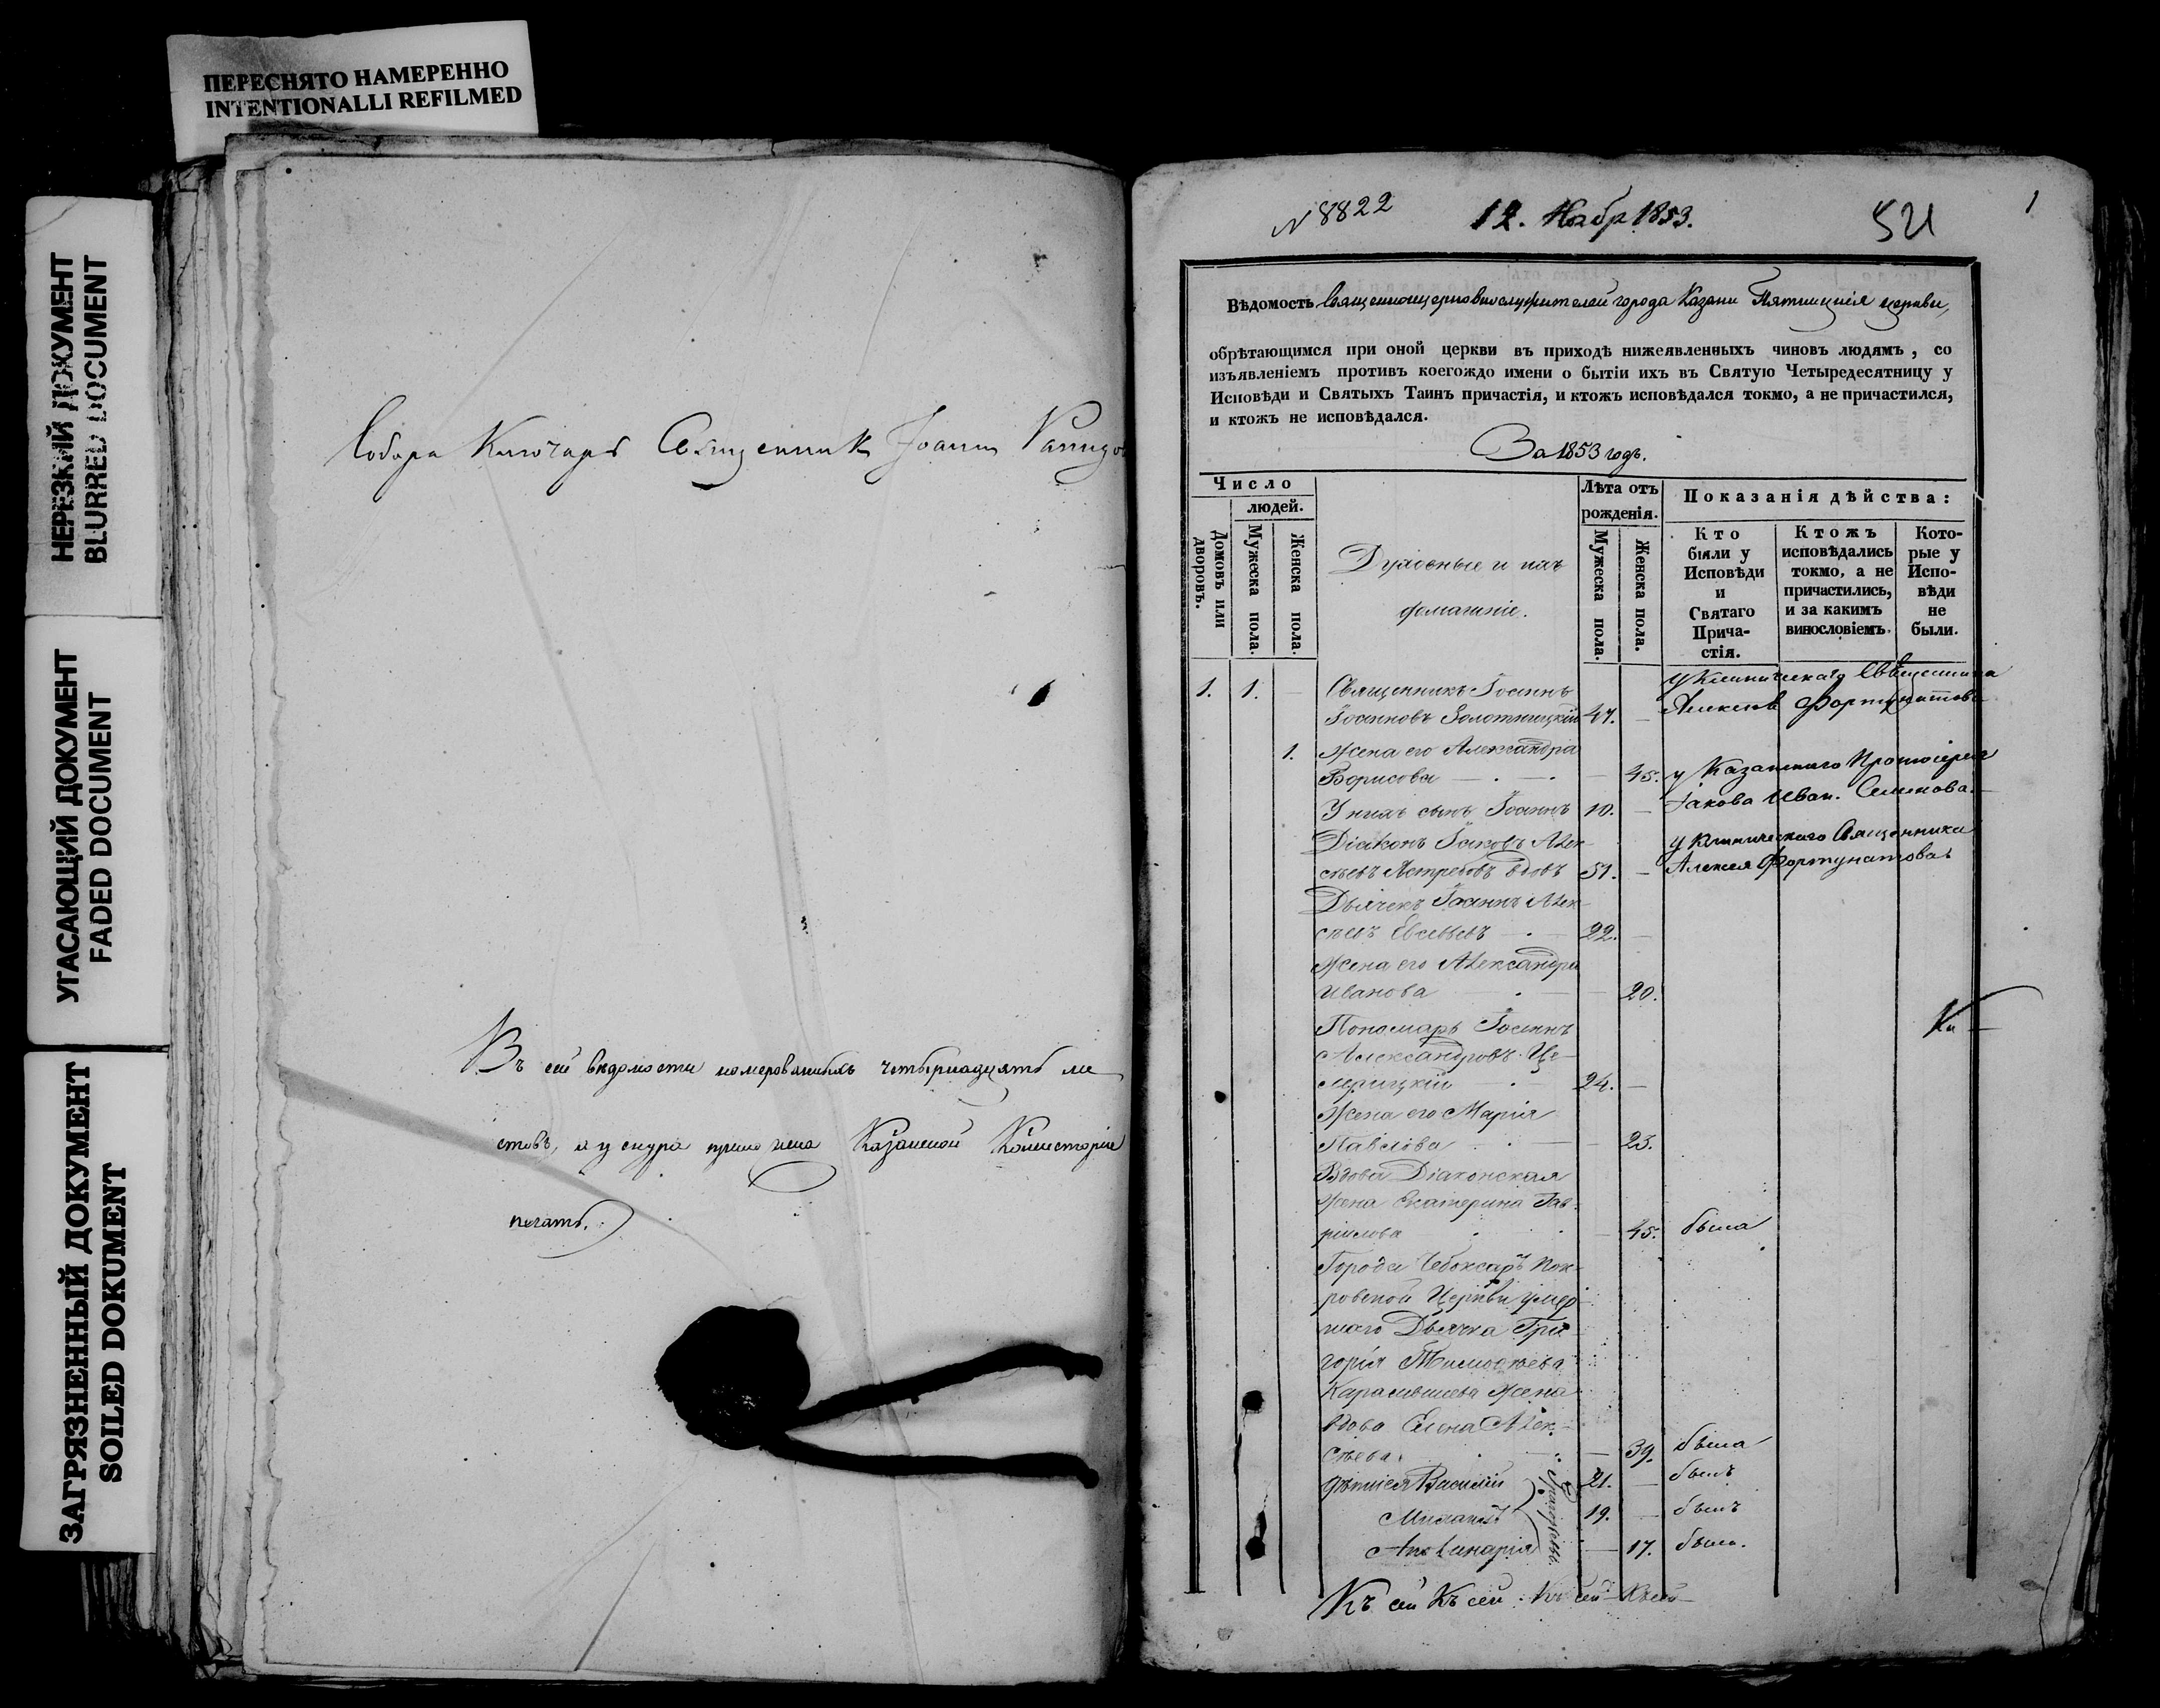 ПЕРЕСНЯТО НАМЕРЕННО
INTENTIONALLI REFILMED
НЕРЕЗКИЙ ДОКУМЕНТ
BLURRED DOCUMENT
УГАСАЮЩИЙ ДОКУМЕНТ
FADED DOCUMENT
ЗАГРЯЗНЕННЫЙ ДОКУМЕНТ
SOILED DOKUMENT
Собора Ключарь Священник Іоанн
Въ сей ведомости номерованныхъ четырнадцать ли
стовъ, а у снура приложена Казанской Консисторіи
печать.
N 8822
12. Ноябр 1853.
1
Вѣдомость Священноцерковнослужителей города Казани Пятницкія церкви,
обрѣтающимся при оной церкви въ приходѣ нижеявленныхъ чиновъ людямъ, со
изъявленіемъ противъ коегождо имени о бытіи ихъ въ Святую Четыредесятницу у
Исповѣди и Святыхъ Таинъ причастія, и ктожъ исповѣдался токмо, а не причастился,
и ктожъ не исповѣдался.
За 1853 годъ.
Число
людей.
Домовъ или дворовъ.
Мужеска пола.
Женска пола.
Духовные и ихъ
домашніе.
Лѣта отъ
рожденія.
Мужеска пола.
Женска пола.
Показанія дѣйства:
Кто
были у
Исповѣди
и
Святаго
Прича-
стія.
Ктожъ
исповѣдались
токмо, а не
причастились,
и за какимъ
винословіемъ.
Кото-
рые у
Испо-
вѣди
не
были.
1. 1. Священникъ Іоаннъ у Клиническаго Священника
Іоанновъ Золотницкій 47. Алексія Фортунатова
1. Жена его Александра
Борисова 45. у Казанскаго Протоіерея
У нихъ сынъ Іоаннъ 10. Іакова Иван. Семенова.
Діаконъ Іаковъ Алек- у Клиническаго Священника
сѣевъ Ястребовъ вдовъ 51. Алексея Фортунатова
Дьячекъ Іоаннъ Алек-
сѣевъ Евсевьевъ 22.
Жена его Александра
Иванова 20.
Пономарь Іоаннъ
Александровъ
24.
Жена его Марія
Павлова 23.
Вдова Діаконская
жена Екатерина Гав-
ріилова 45. была
Города Чебоксаръ Пок-
ровской Церкви умер-
шаго Дьячка Гри-
горія Тимофѣева
Карамышева жена
вдова Елена Алек-
сѣева. 39. была
Дѣти ея Василій 21. былъ
Михаилъ 19. былъ
Аполинарія 17. была.
Къ сей Къ сей Къ сей Къ сей